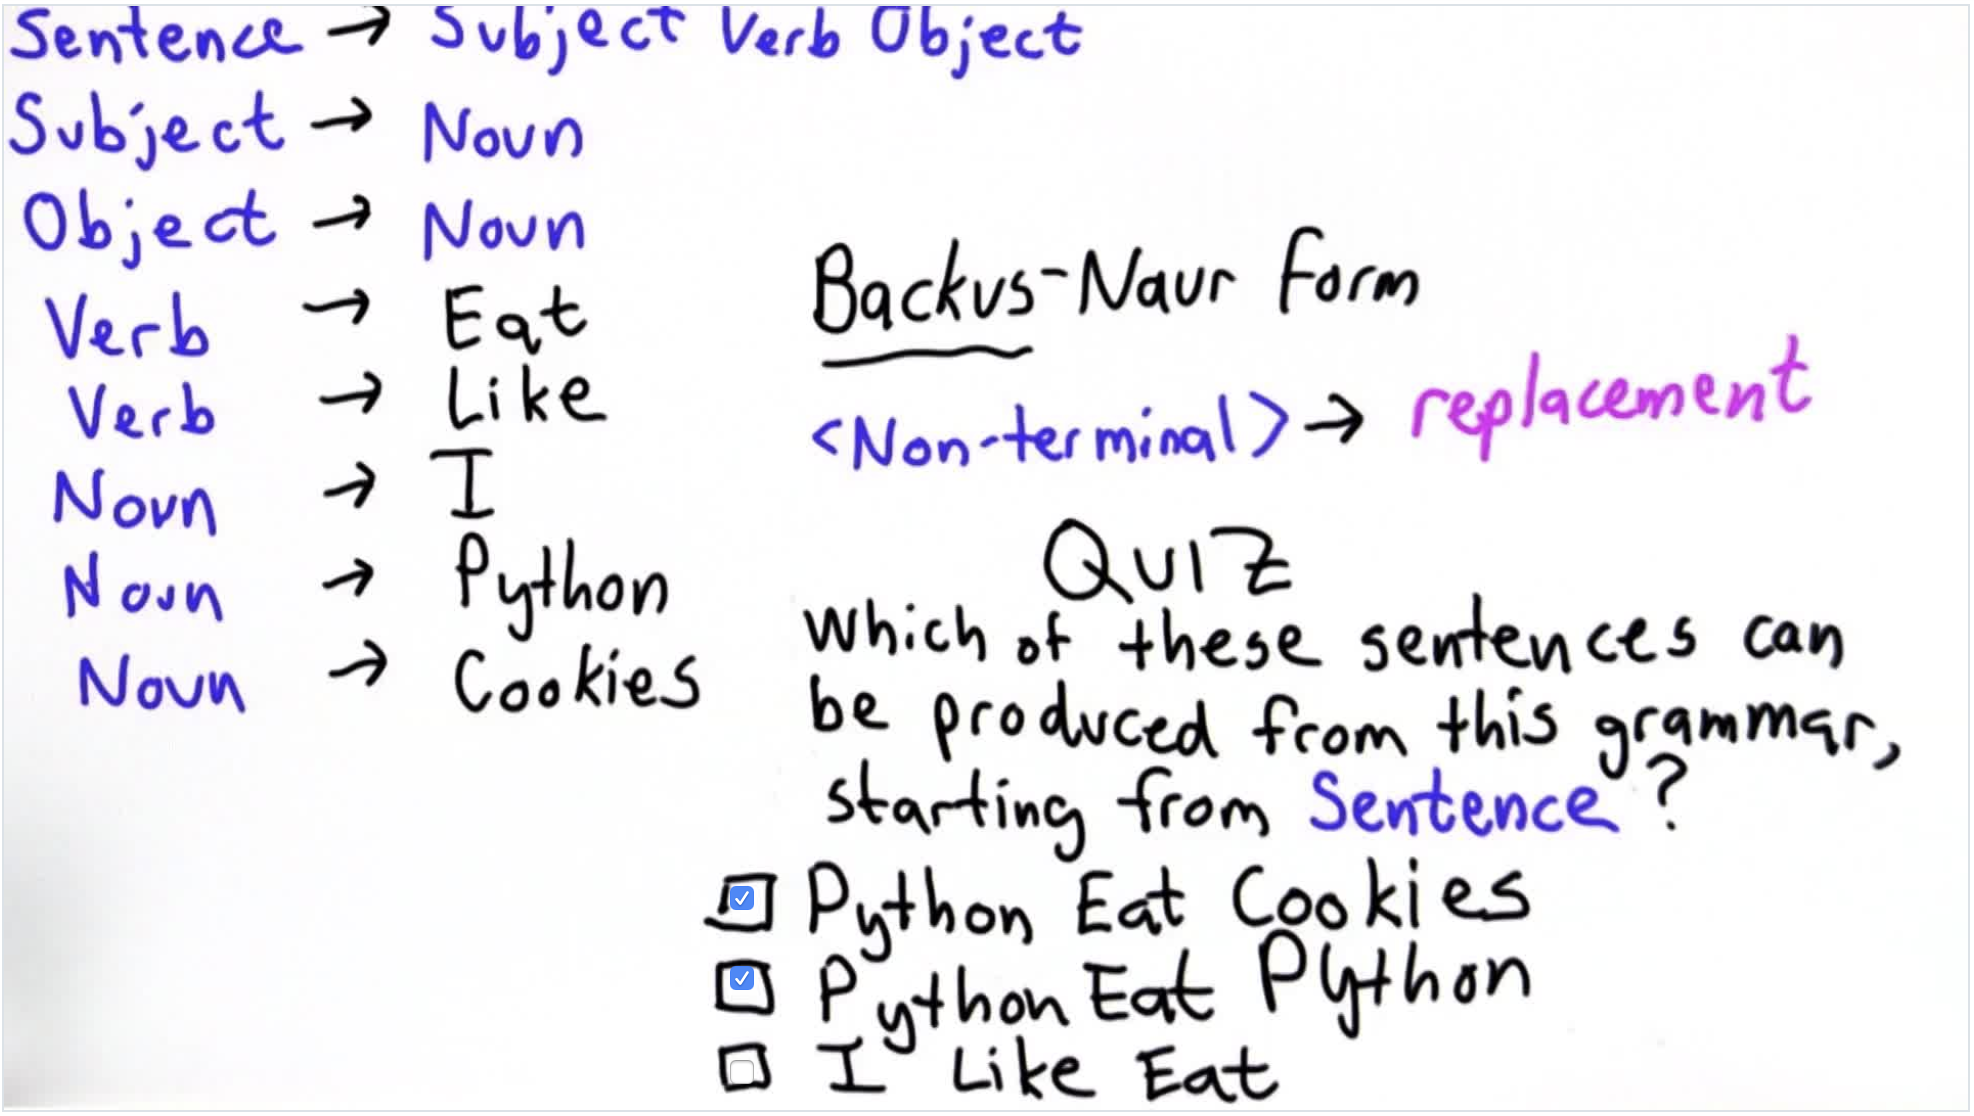 Sentence → Subject Verb Object
Subject → Noun
Object → Noun
Verb → Eat
Verb → Like
Noun → I
Noun → Python
Noun → Cookies
Backus-Naur Form
<Non-terminal> → replacement
QUIZ
Which of these sentences can
be produced from this grammar,
starting from Sentence?
Python Eat Cookies
Python Eat Python
I Like Eat